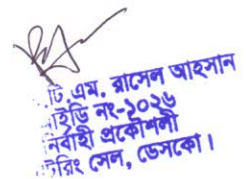 টি.এম. রাসেল আহসান
আইডি নং-১০২৬
নির্বাহী প্রকৌশলী
সেল, ডেসকো।